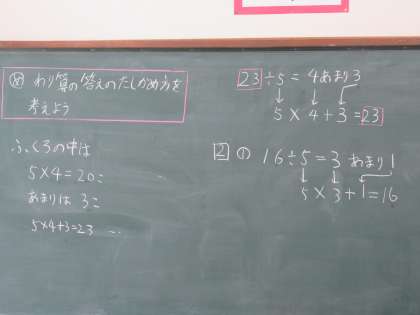 め わり算の答えのたしかめ方を
考えよう
ふくろの中は
5×4=20こ
あまりは 3こ
5×4+3=23
23÷5=4あまり3
5×4+3=23
2 ① 16÷5=3 あまり1
5×3+1=16